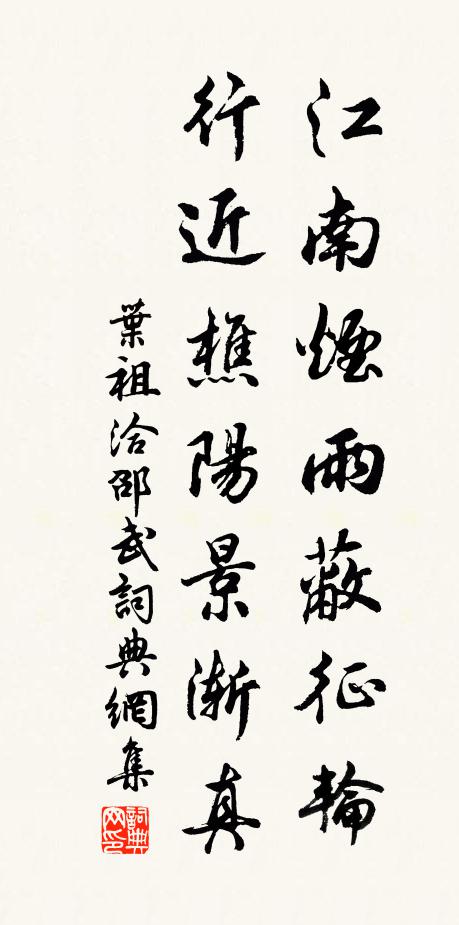 江南煙雨蔽征輪
行近樵陽景漸真
葉祖洽邵武詞典網集
詞典网印